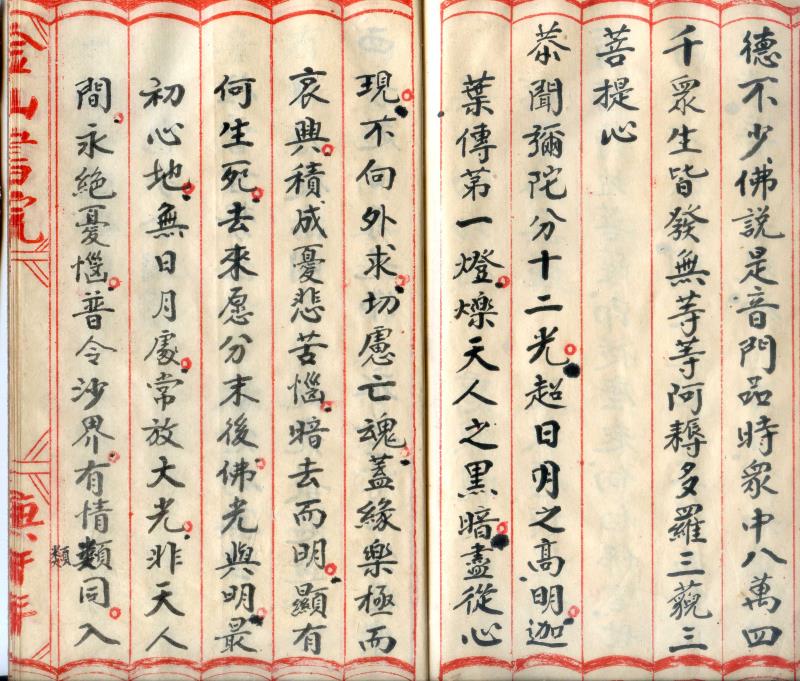 德不少佛説是音門品時眾中八萬四
千眾生皆發無等等阿耨多羅三藐三
菩提心
恭聞彌陀分十二光超日月之高明迦
葉傳第一燈爍天人之黒暗盡從心
現不向外求切慮亡魂蓋緣樂極而
哀興積成憂悲苦惱暗去而明顯有
何生死去來愿分末後佛光與明最
初心地無日月處常放大光非天人
間永絶憂惱普令沙界有情類同入
類
金山書院